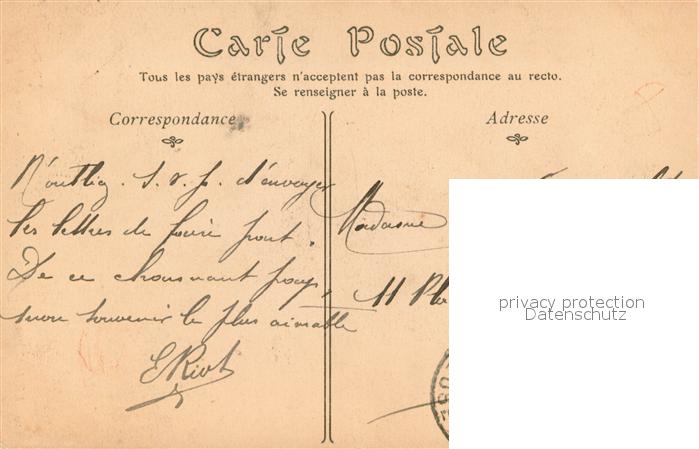 Carte Postale
Tous les pays étrangers n'acceptent pas la correspondance au recto.
Se renseigner à la poste.
Correspondance
Adresse
N'oubliez s. v. p. d'envoyer
les lettres de faire part.
De ce charmant pays,
mon souvenir le plus aimable
E Riot
Madame
11 Pl
privacy protection
Datenschutz